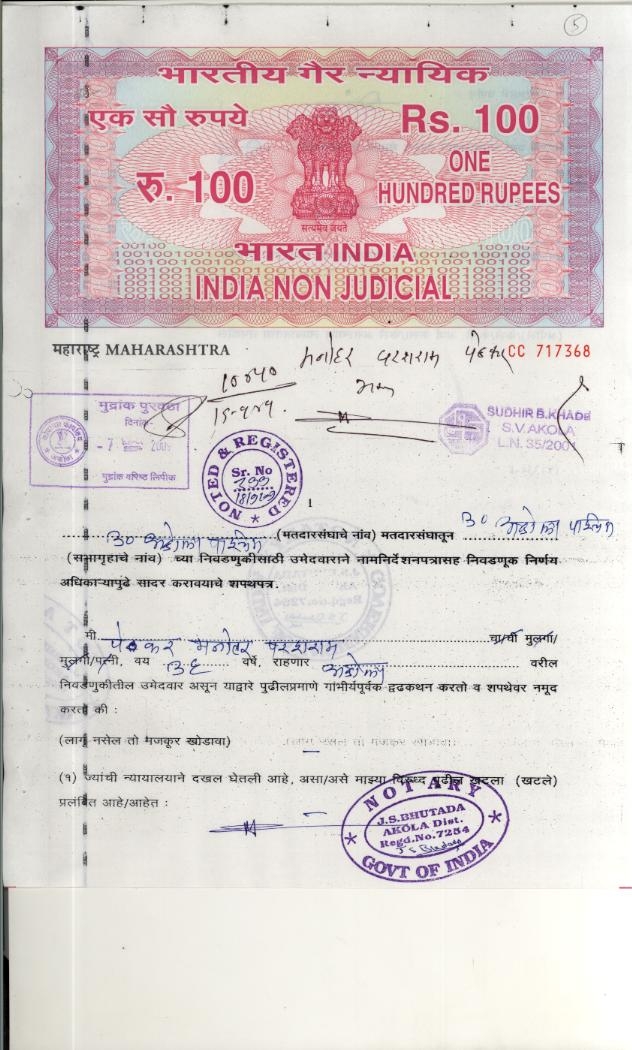 5
भारतीय गैर न्यायिक
एक सौ रुपये
Rs. 100
रु. 100
ONE
HUNDRED RUPEES
सत्यमेव जयते
भारत INDIA
INDIA NON JUDICIAL
महाराष्ट्र MAHARASHTRA
मनोहर परशराम पेटकर CC 717368
मुद्रांक पुरवठा
दिनांक
मुद्रांक वरिष्ठ लिपीक
SUDHIR B.KHADE
S.V.AKOLA
L.N. 35/2001
NOTED & REGISTERED
Sr. No
1
(मतदारसंघाचे नांव) मतदारसंघातून
(सभागृहाचे नांव) च्या निवडणुकीसाठी उमेदवाराने नामनिर्देशनपत्रासह निवडणूक निर्णय
अधिकाऱ्यापुढे सादर करावयाचे शपथपत्र.
मी मनोहर परशराम चा/ची मुलगा/
मुलगी/पत्नी, वय ३६ वर्षे, राहणार अकोला वरील
निवडणुकीतील उमेदवार असून याद्वारे पुढीलप्रमाणे गांभीर्यपूर्वक द्रढकथन करतो व शपथेवर नमूद
करतो की :
(लागू नसेल तो मजकूर खोडावा)
(१) ज्यांची न्यायालयाने दखल घेतली आहे, असा/असे माझ्या विरुध्द पुढील खटला (खटले)
प्रलंबित आहे/आहेत :
NOTARY
J.S.BHUTADA
AKOLA Dist.
Regd.No.7254
GOVT OF INDIA